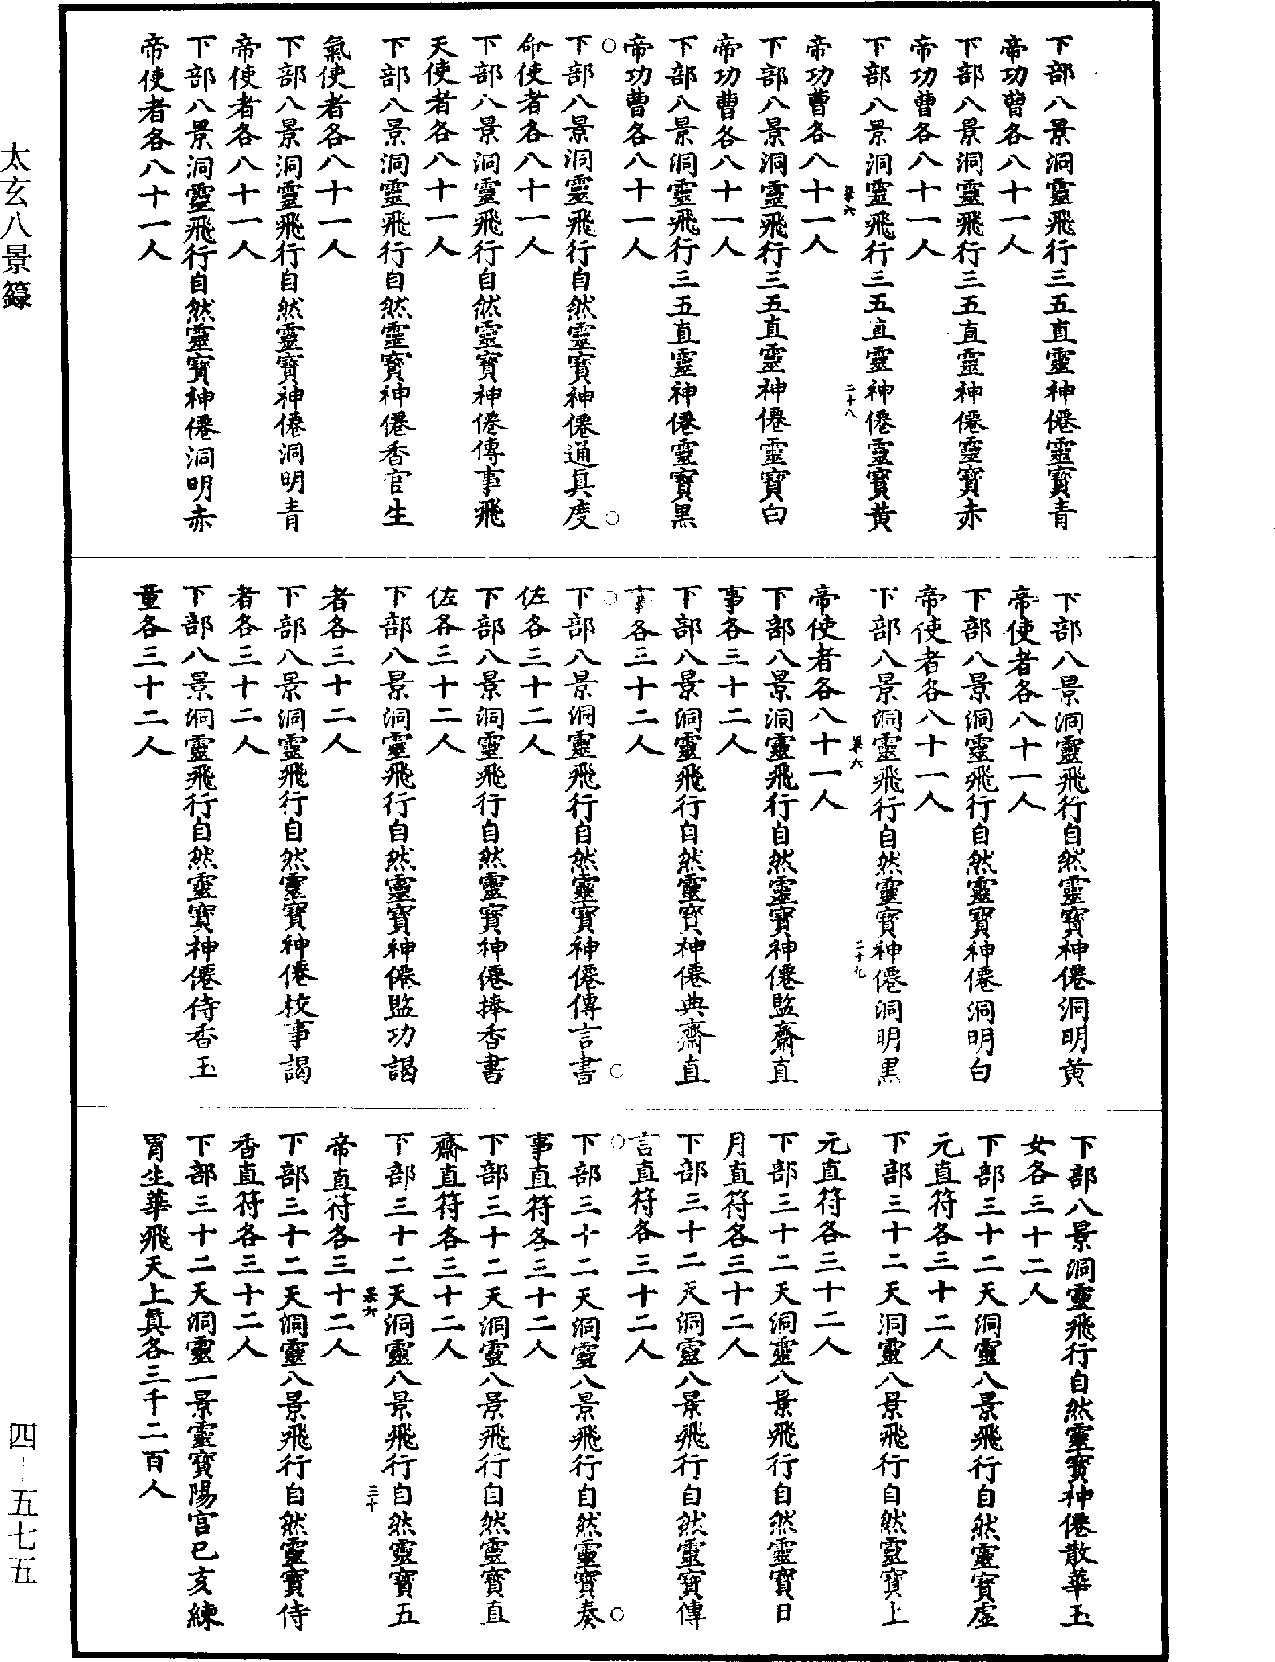 下部八景洞靈飛行三五直靈神僊靈寶青
帝功曹各八十一人
下部八景洞靈飛行三五直靈神僊靈寶赤
帝功曹各八十一人
下部八景洞靈飛行三五直靈神僊靈寶黄
菓六
二十八
帝功曹各八十一人
下部八景洞靈飛行三五直靈神僊靈寶白
帝功曹各八十一人
下部八景洞靈飛行三五直靈神僊靈寶黒
帝功曹各八十一人
下部八景洞靈飛行自然靈寶神僊通真度
命使者各八十一人
下部八景洞靈飛行自然靈寶神僊傳事飛
天使者各八十一人
下部八景洞靈飛行自然靈寶神僊香官生
氣使者各八十一人
下部八景洞靈飛行自然靈寶神僊洞明青
帝使者各八十一人
下部八景洞靈飛行自然靈寶神僊洞明赤
帝使者各八十一人
下部八景洞靈飛行自然靈寶神僊洞明黄
帝使者各八十一人
下部八景洞靈飛行自然靈寶神僊洞明白
帝使者各八十一人
下部八景洞靈飛行自然靈寶神僊洞明黒
菓六
二十九
帝使者各八十一人
下部八景洞靈飛行自然靈寶神僊監齋直
事各三十二人
下部八景洞靈飛行自然靈寶神僊典齋直
事各三十二人
下部八景洞靈飛行自然靈寶神僊傳言書
佐各三十二人
下部八景洞靈飛行自然靈寶神僊捧香書
佐各三十二人
下部八景洞靈飛行自然靈寶神僊監功謁
者各三十二人
下部八景洞靈飛行自然靈寶神僊校事謁
者各三十二人
下部八景洞靈飛行自然靈寶神僊侍香玉
童各三十二人
下部八景洞靈飛行自然靈寶神僊散華玉
女各三十二人
下部三十二天洞靈八景飛行自然靈寶虛
元直符各三十二人
下部三十二天洞靈八景飛行自然靈寶上
元直符各三十二人
下部三十二天洞靈八景飛行自然靈寶日
月直符各三十二人
下部三十二天洞靈八景飛行自然靈寶傳
言直符各三十二人
下部三十二天洞靈八景飛行自然靈寶奏
事直符各三十二人
下部三十二天洞靈八景飛行自然靈寶直
齋直符各三十二人
下部三十二天洞靈八景飛行自然靈寶五
菓六
三十
帝直符各三十二人
下部三十二天洞靈八景飛行自然靈寶侍
香直符各三十二人
下部三十二天洞靈一景靈寶陽宫巳亥練
胃生華飛天上真各三千二百人
太玄八景籙
四-五七五